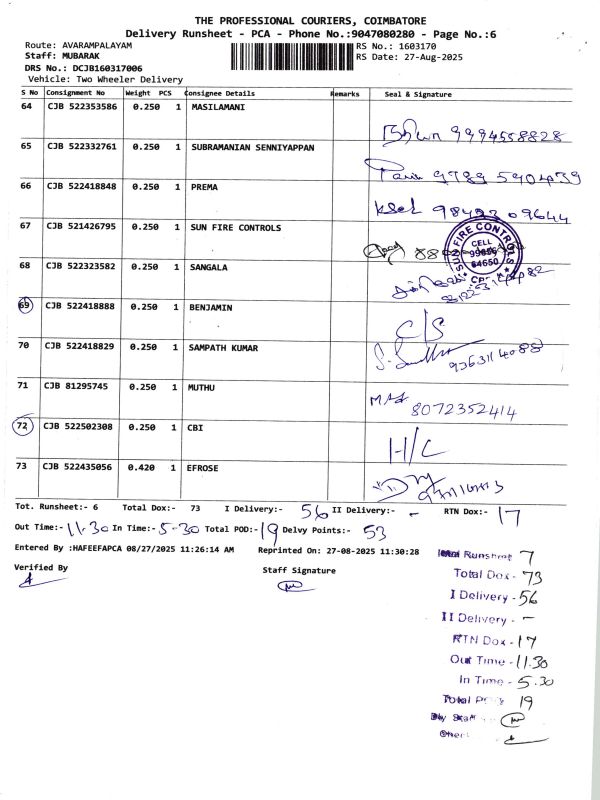 THE PROFESSIONAL COURIERS, COIMBATORE
Delivery Runsheet - PCA - Phone No.:9047080280 - Page No.:6
Route: AVARAMPALAYAM RS No.: 1603170
Staff: MUBARAK RS Date: 27-Aug-2025
DRS No.: DCJB160317006
Vehicle: Two Wheeler Delivery
S No Consignment No Weight PCS Consignee Details Remarks Seal & Signature
64 CJB 522353586 0.250 1 MASILAMANI 9994558828
65 CJB 522332761 0.250 1 SUBRAMANIAN SENNIYAPPAN 9789590439
66 CJB 522418848 0.250 1 PREMA
67 CJB 521426795 0.250 1 SUN FIRE CONTROLS SUN FIRE CONTROLS CELL
68 CJB 522323582 0.250 1 SANGALA
69 CJB 522418888 0.250 1 BENJAMIN C/S
70 CJB 522418829 0.250 1 SAMPATH KUMAR 9363114088
71 CJB 81295745 0.250 1 MUTHU 8072352414
72 CJB 522502308 0.250 1 CBI H/C
73 CJB 522435056 0.420 1 EFROSE
Tot. Runsheet:- 6 Total Dox:- 73 I Delivery:- 56 II Delivery:- - RTN Dox:- 17
Out Time:- 11.30 In Time:- 5-30 Total POD:- 19 Delvy Points:- 53
Entered By :HAFEEFAPCA 08/27/2025 11:26:14 AM Reprinted On: 27-08-2025 11:30:28
Verified By Staff Signature
Total Runsheet 7
Total Dox:- 73
I Delivery:- 56
II Delivery:- -
RTN Dox:- 17
Out Time:- 11.30
In Time:- 5.30
Total 19